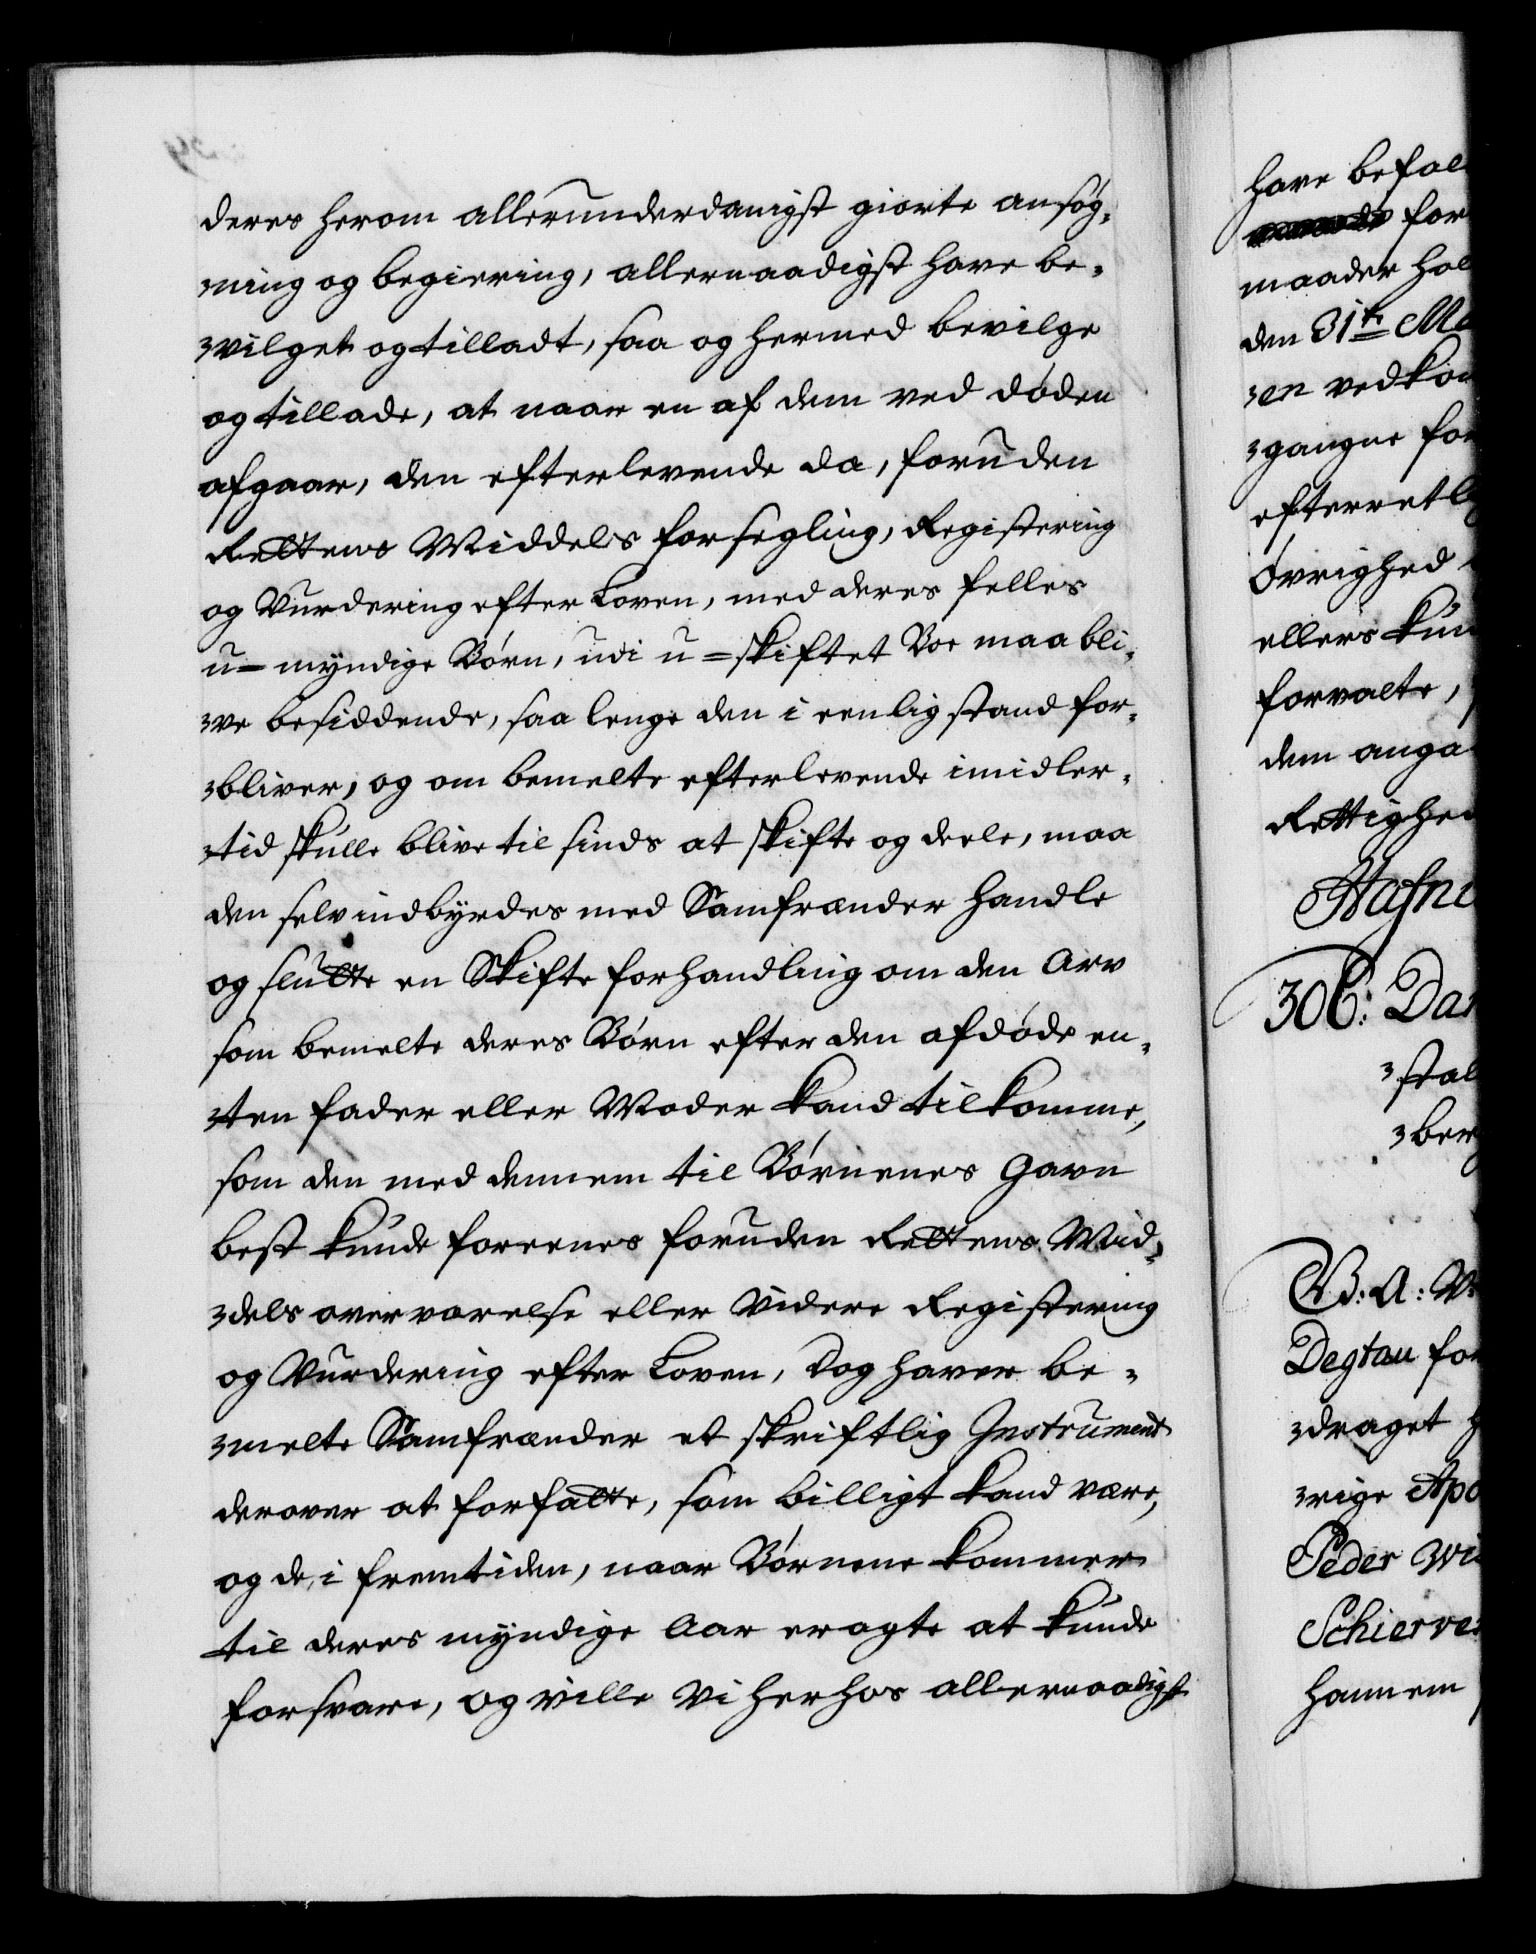 deres herom allerunderdanigst giorte ansøg-
ning og begiering, allernaadigst have be-
vilget og tilladt, saa og hermed bevilge
og tillade, at naar en af dem ved døden
afgaar, den efterlevende da, foruden
Rettens Middels forsegling, Registering
og Vurdering efter Loven, med deres felles
u-myndige Børn, udi u-skiftet Boe maa bli-
ve besiddende, saa lenge den i eenlig stand for-
bliver, og om bemelte efterlevende imidler-
tid skulle blive til sinds at skifte og deele, maa
den selv indbyrdes med Samfrænder handle
og slutte en Skifte forhandling om den Arv
som bemelte deres Børn efter den afdøde en-
ten fader eller Moder kand tilkomme,
som den med dennem til Børnenes Gavn
best kunde foreenes foruden Rettens Mid-
dels overværelse eller Videre Registering
og Vurdering efter Loven, dog haver be-
melte Samfrænder et skriftlig Instrument
derover at forfatte, som billigt kand være,
og de, i fremtiden, naar Børnene kommer
til deres myndige Aar eragte at kunde
forsvare, og ville Vi herhos allernaadigst
have befal
for
maader hol
den 31te Ma
en vedkom
gangne for
efterretl
Øvrighed
ellers kun
forvalte,
dem anga
Rettighed
Hafni
306: Dan
stal
berg
G: A: V:
Degtau for
draget h
rige Apo
Peder Wi
Schierve
hannem